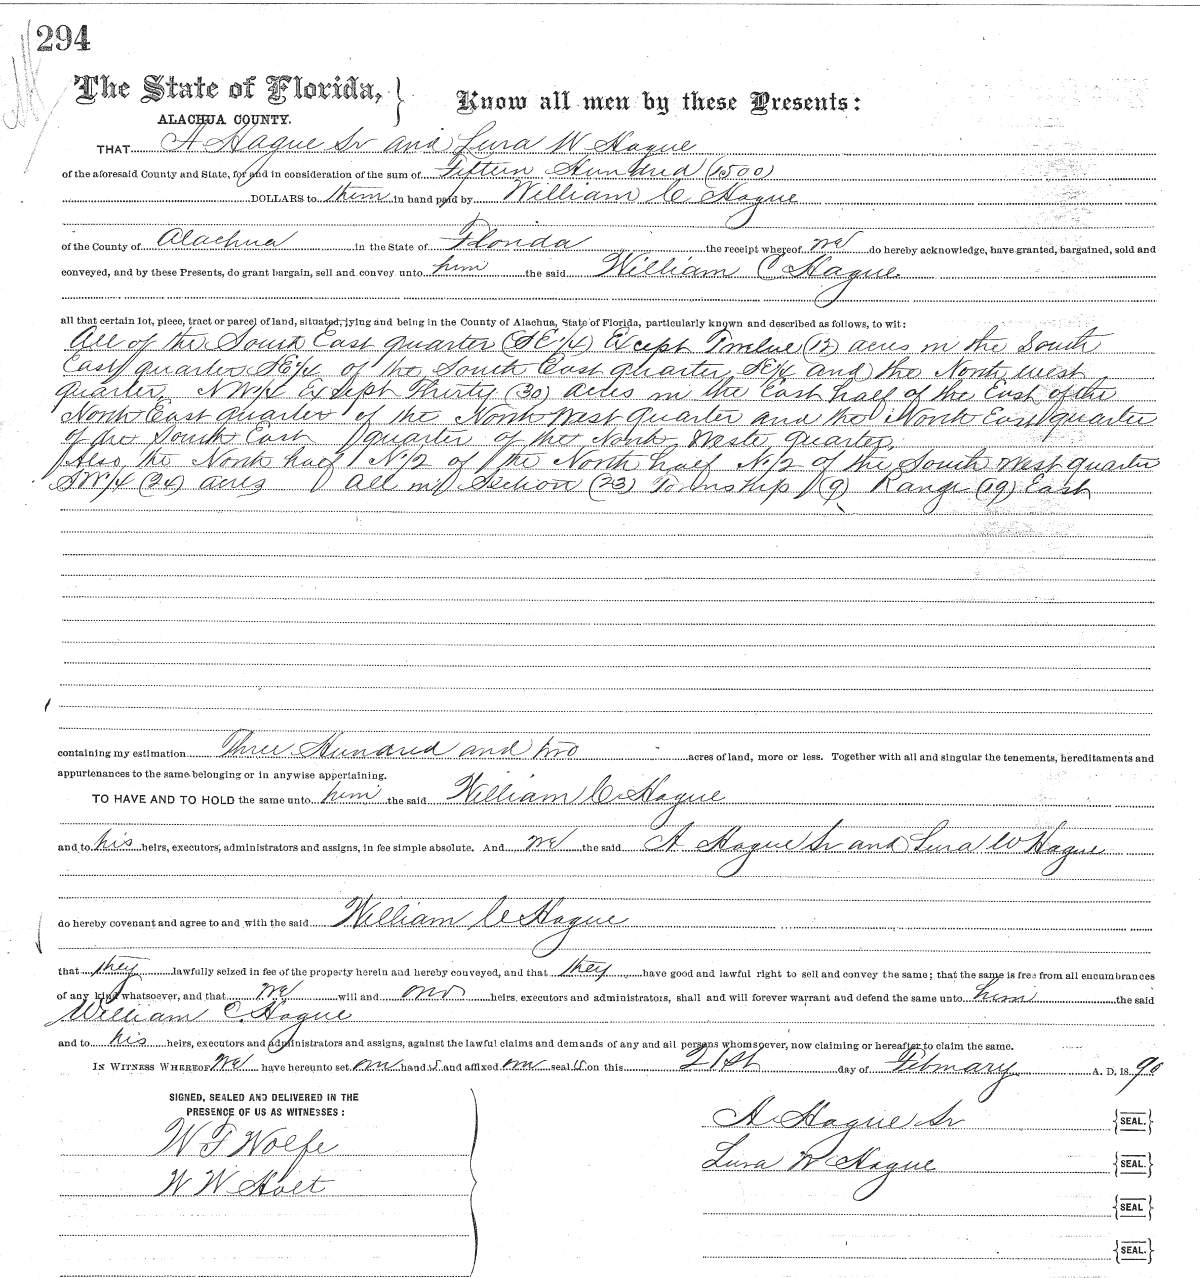 294
The State of Florida,
ALACHUA COUNTY.
Know all men by these Presents:
THAT A Hague Sr and Lura W Hague
of the aforesaid County and State, for and in consideration of the sum of Fifteen Hundred (1500)
DOLLARS to them in hand paid by William C Hague
of the County of Alachua in the State of Florida the receipt whereof we do hereby acknowledge, have granted, bargained, sold and
conveyed, and by these Presents, do grant bargain, sell and convey unto him the said William C Hague
all that certain lot, piece, tract or parcel of land, situated, lying and being in the County of Alachua, State of Florida, particularly known and described as follows, to wit:
All of the South East quarter (SE 1/4) Except Twelve (12) acres in the South
East quarter SE 1/4 of the South East quarter SE 1/4 and the North west
quarter, NW 1/4 Exsept Thirty (30) acres in the East half of the East of the
North East quarter of the North West quarter and the North East quarter
of the South East quarter of the North Weste quarter,
Also the North half N 1/2 of the North half N 1/2 of the South West quarter
SW 1/4 (24) acres All in Section (23) Township (9) Range (19) East
containing my estimation Three Hundred and two acres of land, more or less. Together with all and singular the tenements, hereditaments and
appurtenances to the same belonging or in anywise appertaining.
TO HAVE AND TO HOLD the same unto him the said William C Hague
and to his heirs, executors, administrators and assigns, in fee simple absolute. And we the said A Hague Sr and Lura W Hague
do hereby covenant and agree to and with the said William C Hague
that they lawfully seized in fee of the property herein and hereby conveyed, and that they have good and lawful right to sell and convey the same; that the same is free from all encumbrances
of any kind whatsoever, and that we will and our heirs, executors and administrators, shall and will forever warrant and defend the same unto him the said
William C. Hague
and to his heirs, executors and administrators and assigns, against the lawful claims and demands of any and all persons whomsoever, now claiming or hereafter to claim the same.
IN WITNESS WHEREOF we have hereunto set our hand s and affixed our seal s on this 21st day of February A. D. 18 90
SIGNED, SEALED AND DELIVERED IN THE
PRESENCE OF US AS WITNESSES:
W F Wolfe
W W Holt
A Hague Sr {SEAL.}
Lura W Hague {SEAL.}
{SEAL}
{SEAL.}